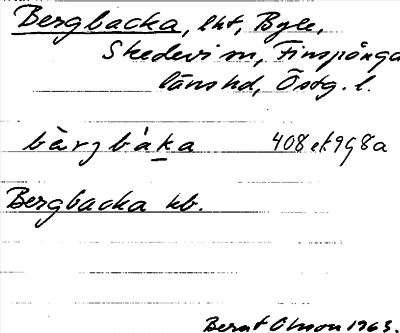 Bergbacka, lht, Byle,
Skedevi sn, Finspånga
länshd, Östg. l.
bàrgbàka 408 ek 9g8a
Bergbacka hb.
Bernt Olsson 1963.